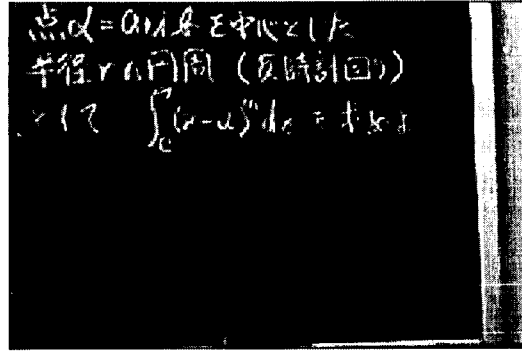 点α=a+ibを中心とした
半径rの円周（反時計回り）
として ∫_C(z-α)^n dz を求めよ